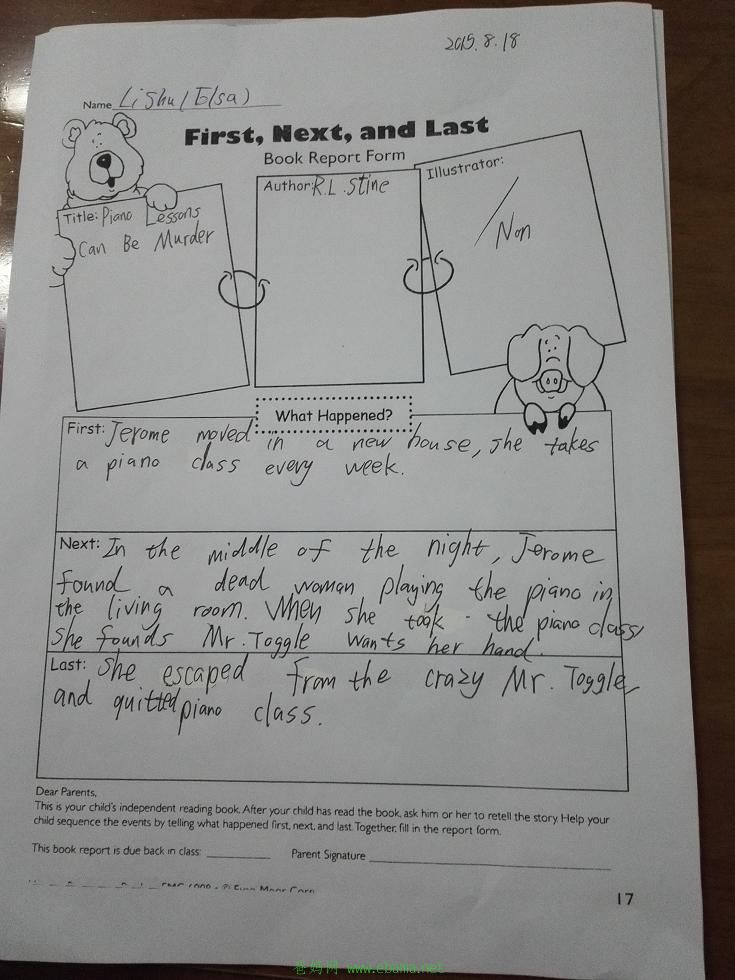 2015.8.18
Name Lishu(Elsa)
First, Next, and Last
Book Report Form
Title: Piano Lessons
Can Be Murder
Author: R.L.Stine
Illustrator:
/ Non
What Happened?
First: Jerome moved in a new house, she takes
a piano class every week.
Next: In the middle of the night, Jerome
found a dead woman playing the piano in
the living room. When she took the piano class,
She founds Mr.Toggle wants her hand.
Last: She escaped from the crazy Mr. Toggle,
and quitted piano class.
Dear Parents,
This is your child's independent reading book. After your child has read the book, ask him or her to retell the story. Help your
child sequence the events by telling what happened first, next, and last. Together, fill in the report form.
This book report is due back in class: Parent Signature
17
爸妈网 www.ebama.net